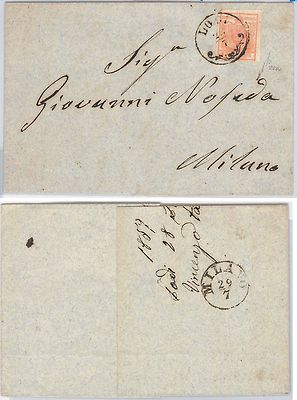 LODI
Sigr
Giovanni Noseda
Milano
1857
Lodi 28
Vincenzo
MILANO
29
7